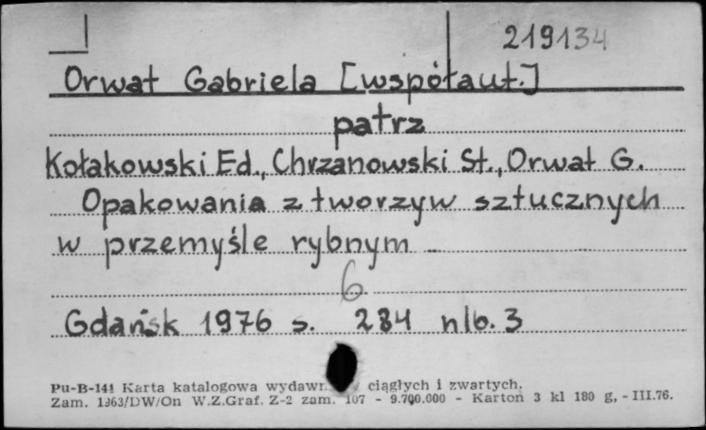 219134
Orwat Gabriela [współaut.]
patrz
Kołakowski Ed., Chrzanowski St., Orwat G.
Opakowania z tworzyw sztucznych
w przemyśle rybnym -
6
Gdańsk 1976 s. 284 nlb. 3
Pu-B-141 Karta katalogowa wydawn. ciągłych i zwartych.
Zam. 1363/DW/On W.Z.Graf. Z-2 zam. 107 - 9.700.000 - Karton 3 kl 180 g, - III.76.